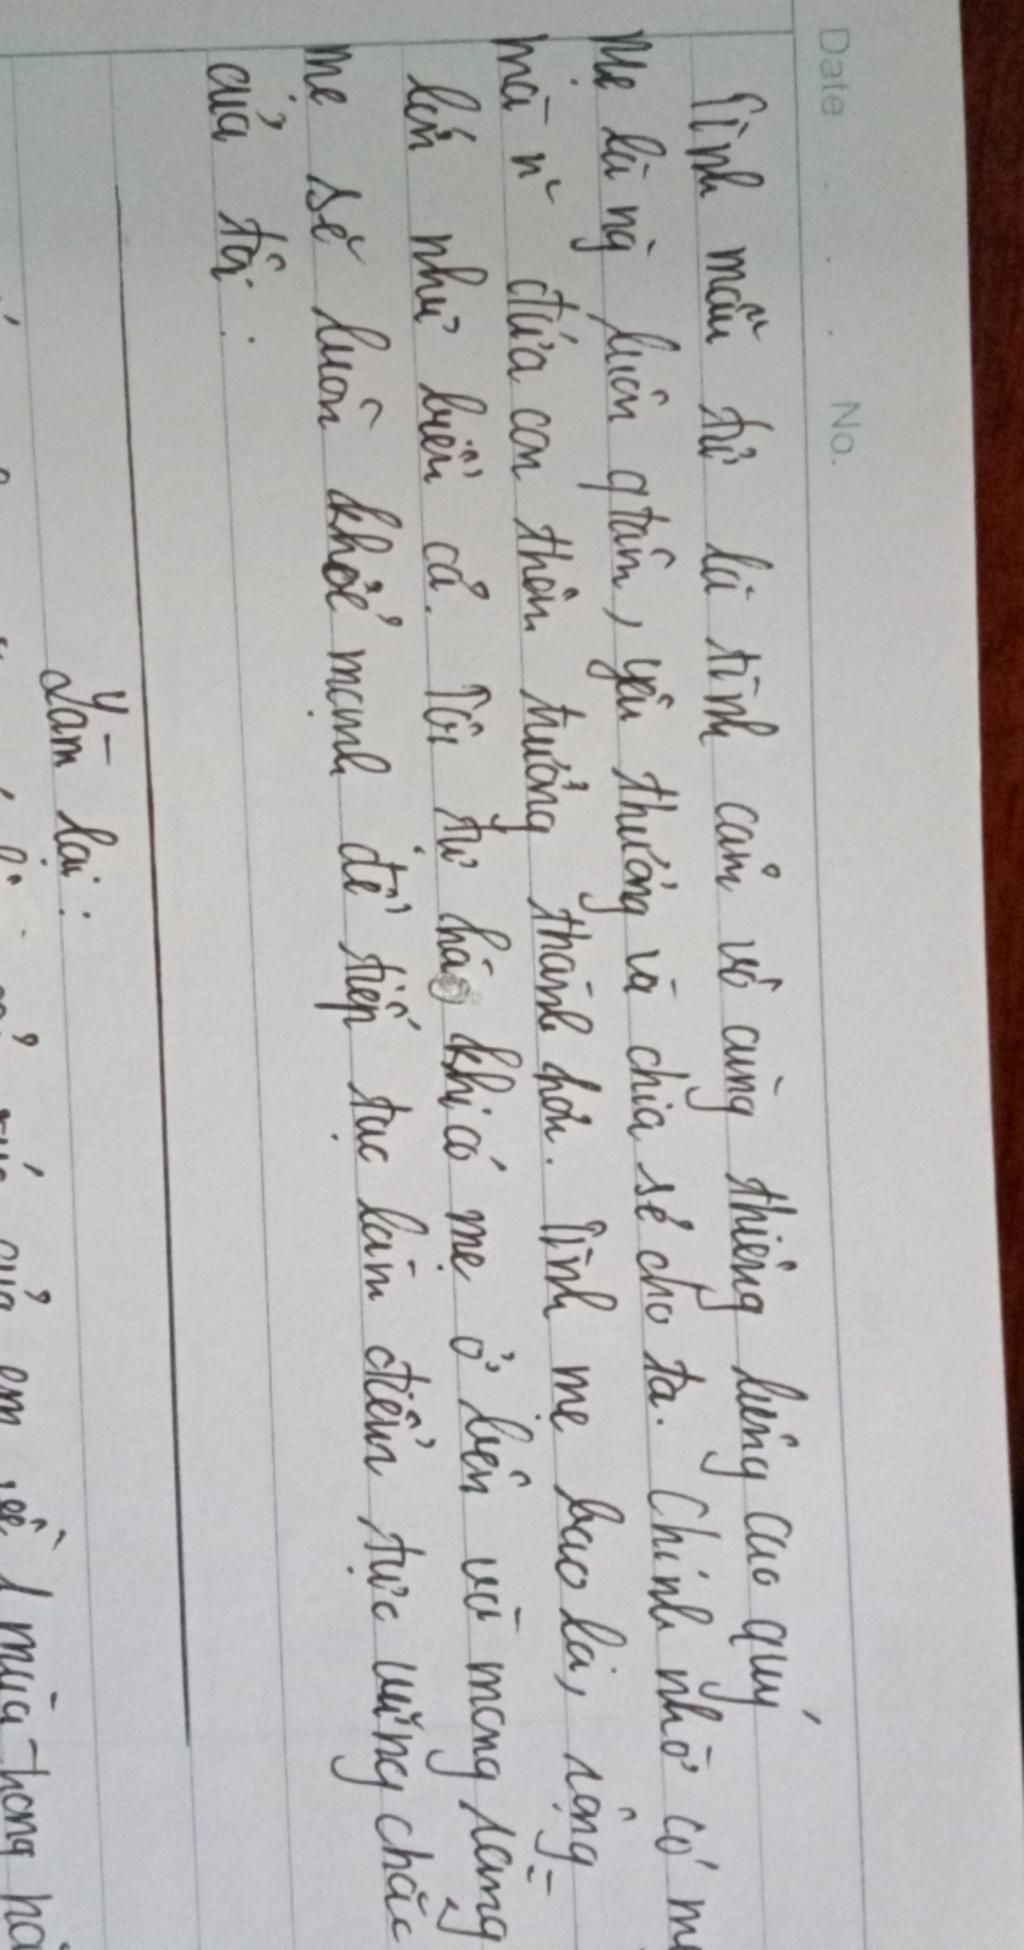 Date . . . No.
Tình mẫu tử là tình cảm vô cùng thiêng liêng cao quý
Mẹ là ng luôn qtâm, yêu thương và chia sẻ cho ta. Chính nhờ có mẹ
mà n~ đứa con thôn trưởng thành hơn. Tình mẹ bao la, rộng
lớn như biển cả. Tôi tự hào khi có mẹ ở bên và mong rằng
mẹ sẽ luôn khoẻ mạnh để tiếp tục làm điểm tựa vững chắc
của tôi.
Làm lại:
của em về 1 mùa trong